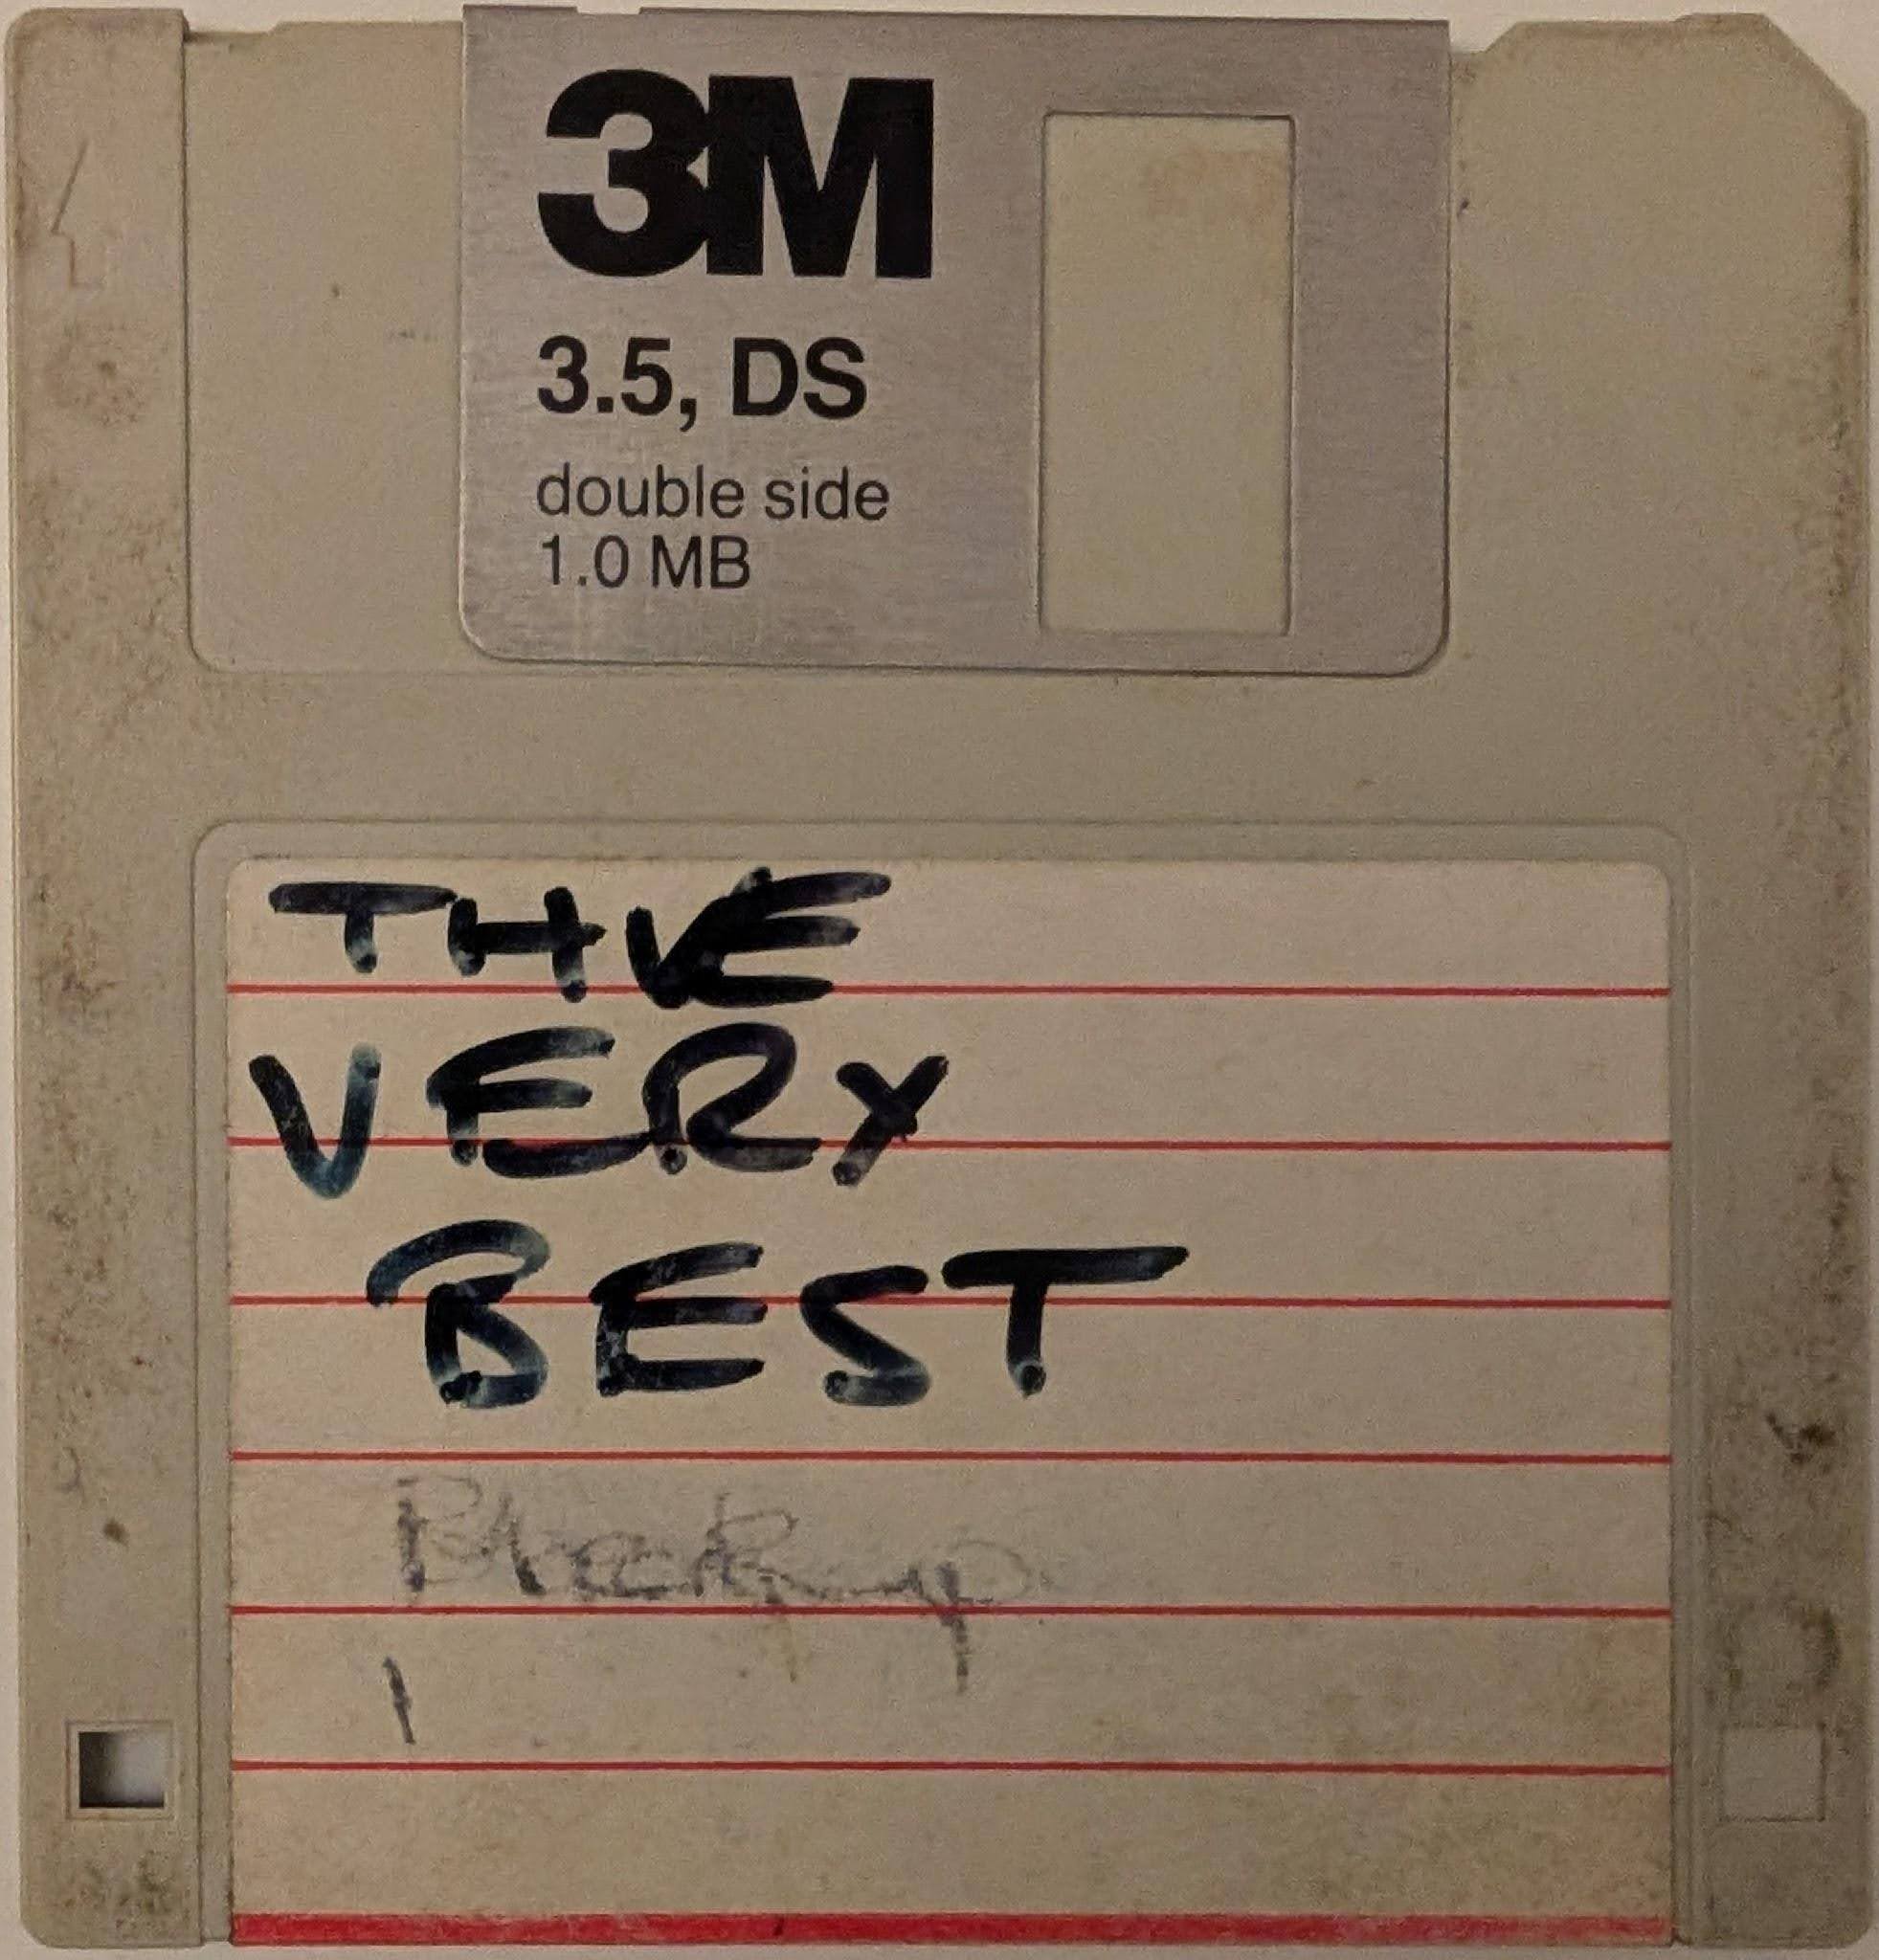 3M
3.5, DS
double side
1.0 MB
THE
VERY
BEST
Backup
1